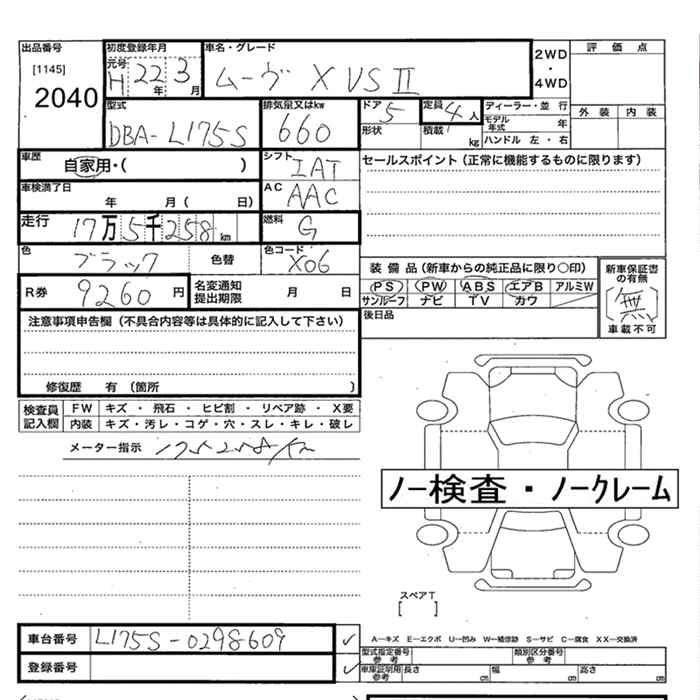 出品番号 初度登録年月 車名・グレード 2WD・4WD 評価点
[1145] 元号 H 22年 3月 ムーヴ X VS Ⅱ
2040
型式 排気量又はkw ドア 5 定員 4人 ディーラー・並行 外装 内装
DBA-L175S 660 形状 積載 kg モデル年式 年
ハンドル 左・右
車歴 自家用・( ) シフト IAT セールスポイント (正常に機能するものに限ります)
車検満了日 年 月( 日) AC AAC
走行 17万5千258km 燃料 G
色 ブラック 色替 色コード X06 装備品 (新車からの純正品に限り○印) 新車保証書の有無
R券 9260円 名変通知提出期限 月 日 PS PW ABS エアB アルミW 〔無〕
サンルーフ ナビ TV カワ 車載不可
注意事項申告欄 (不具合内容等は具体的に記入して下さい) 後日品
修復歴 有 (箇所 )
検査員記入欄 FW キズ ・ 飛石 ・ ヒビ割 ・ リペア跡 ・ X要
内装 キズ・汚レ・コゲ・穴・スレ・キレ・破レ
メーター指示 175258km
ノー検査・ノークレーム
スペアT
[ ]
車台番号 L175S-0298609 ✓
A―キズ E―エクボ U―凹み W―補修跡 S―サビ C―腐食 XX―交換済
登録番号 ✓
型式指定番号参考 類別区分番号参考
車庫証明用参考 長さ cm 幅 cm 高さ cm